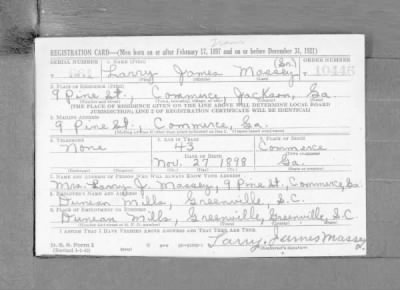 REGISTRATION CARD—(Men born on or after February 17, 1897 and on or before December 31, 1921)
SERIAL NUMBER 1. NAME (Print) (Sr.) ORDER NUMBER
Larry James Massey 10445
2. PLACE OF RESIDENCE (Print)
9 Pine St., Commerce, Jackson, Ga.
[THE PLACE OF RESIDENCE GIVEN ON THE LINE ABOVE WILL DETERMINE LOCAL BOARD
JURISDICTION; LINE 2 OF REGISTRATION CERTIFICATE WILL BE IDENTICAL]
3. MAILING ADDRESS
9 Pine St. Commerce, Ga.
4. TELEPHONE 5. AGE IN YEARS 6. PLACE OF BIRTH
None 43 Commerce
DATE OF BIRTH
Nov. 27 1898 Ga.
7. NAME AND ADDRESS OF PERSON WHO WILL ALWAYS KNOW YOUR ADDRESS
Mrs. Larry J. Massey, 9 Pine St., Commerce, Ga.
8. EMPLOYER'S NAME AND ADDRESS
Duncan Mills, Greenville, S.C.
9. PLACE OF EMPLOYMENT OR BUSINESS
Duncan Mills, Greenville, Greenville, S.C.
I AFFIRM THAT I HAVE VERIFIED ABOVE ANSWERS AND THAT THEY ARE TRUE.
D. S. S. Form 1
Larry James Massey